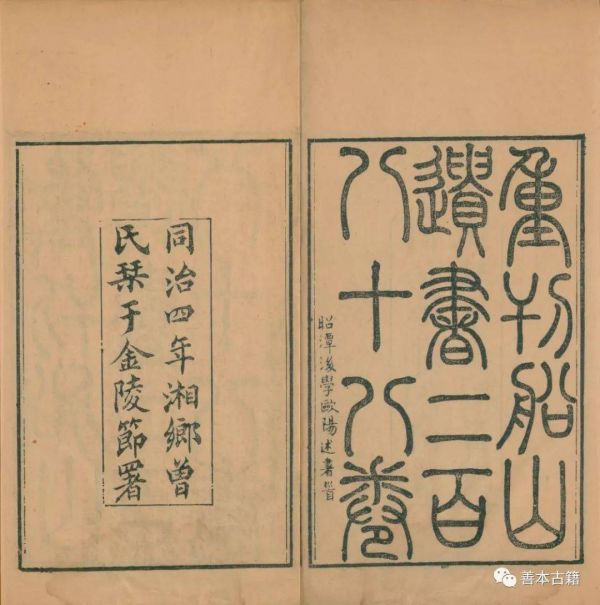 重刊船山
遺書二百
八十八卷
昭潭後學歐陽述
同治四年湘鄉曾
氏栞于金陵節署
善本古籍